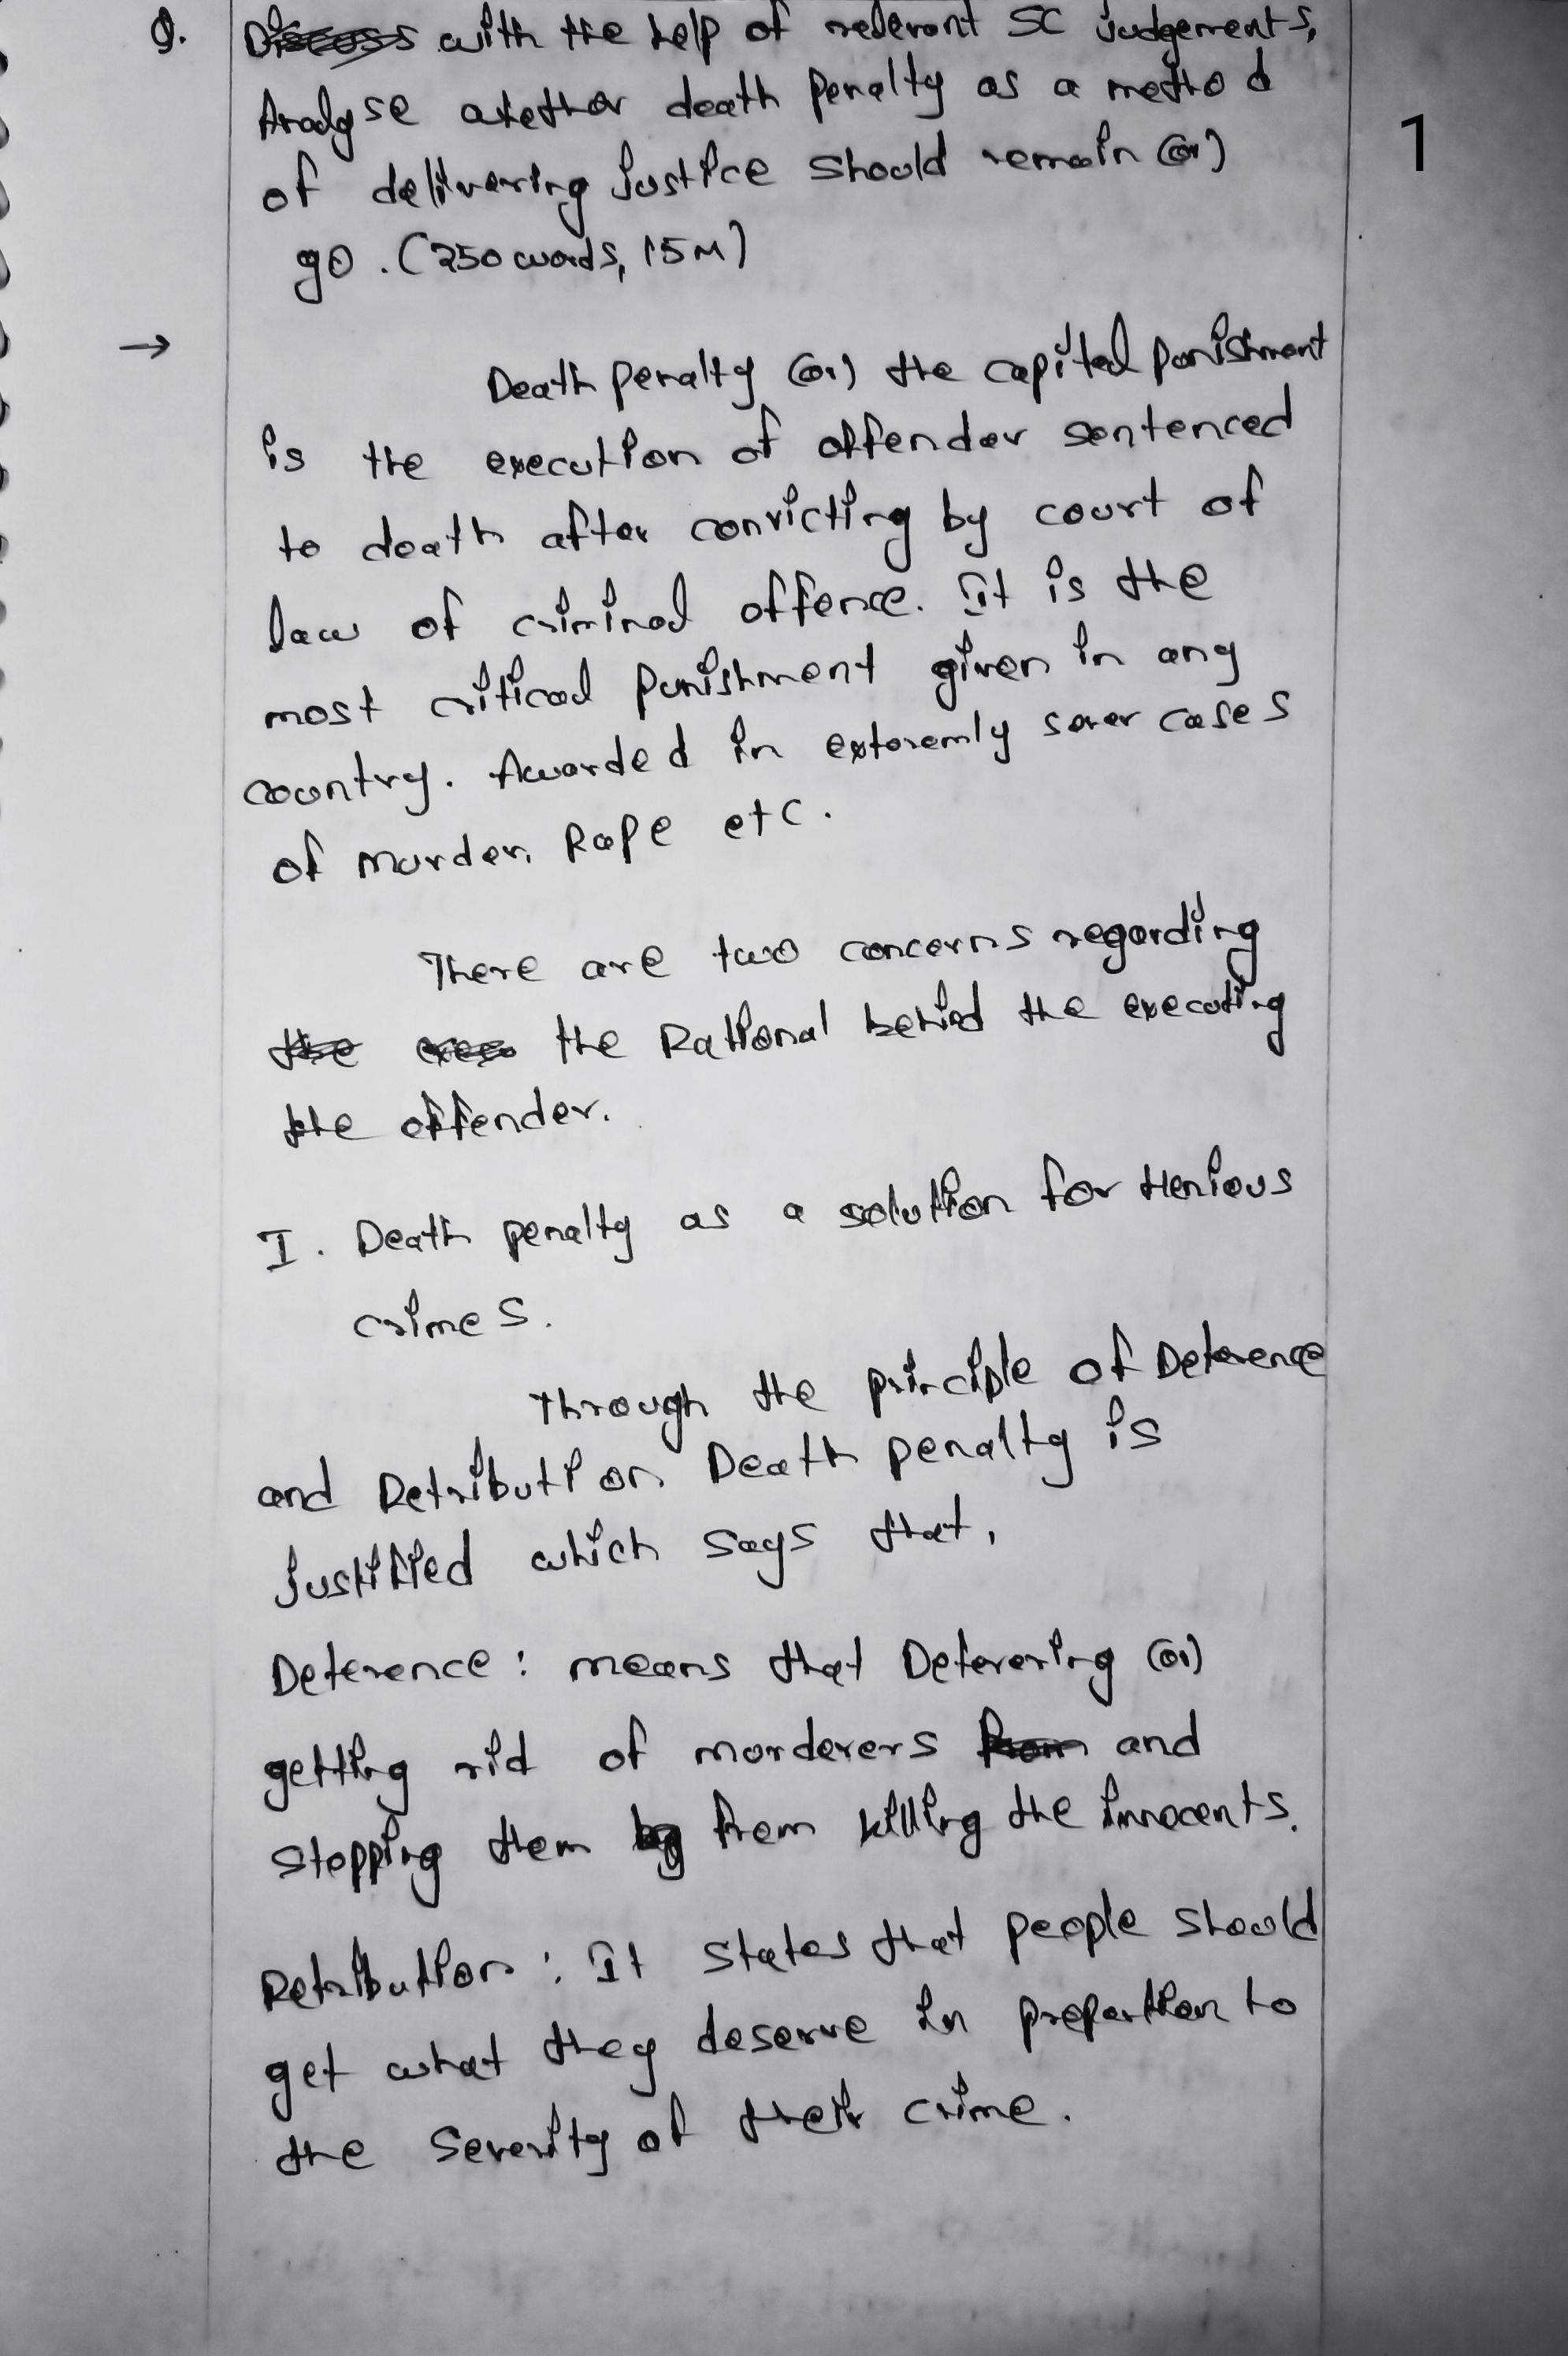 Q. Discuss with the help of relevant SC judgements,
1
Analyse whether death penalty as a method
of delivering justice should remain (or)
go. (250 words, 15M)
→
Death penalty (or) the capital punishment
is the execution of offender sentenced
to death after convicting by court of
law of criminal offence. It is the
most critical punishment given in any
country. Awarded in extoremly sever cases
of murder, Rape etc.
There are two concerns regarding
the the Rational behind the executing
the offender.
I. Death penalty as a solution for Henious
crimes.
Through the principle of Deterence
and Retribution Death penalty is
justified which says that,
Deterence : means that Deterering (or)
getting rid of morderers from and
stopping them by from killing the innocents.
Retribution : It states that people should
get what they deserve in propertion to
the severity of their crime.